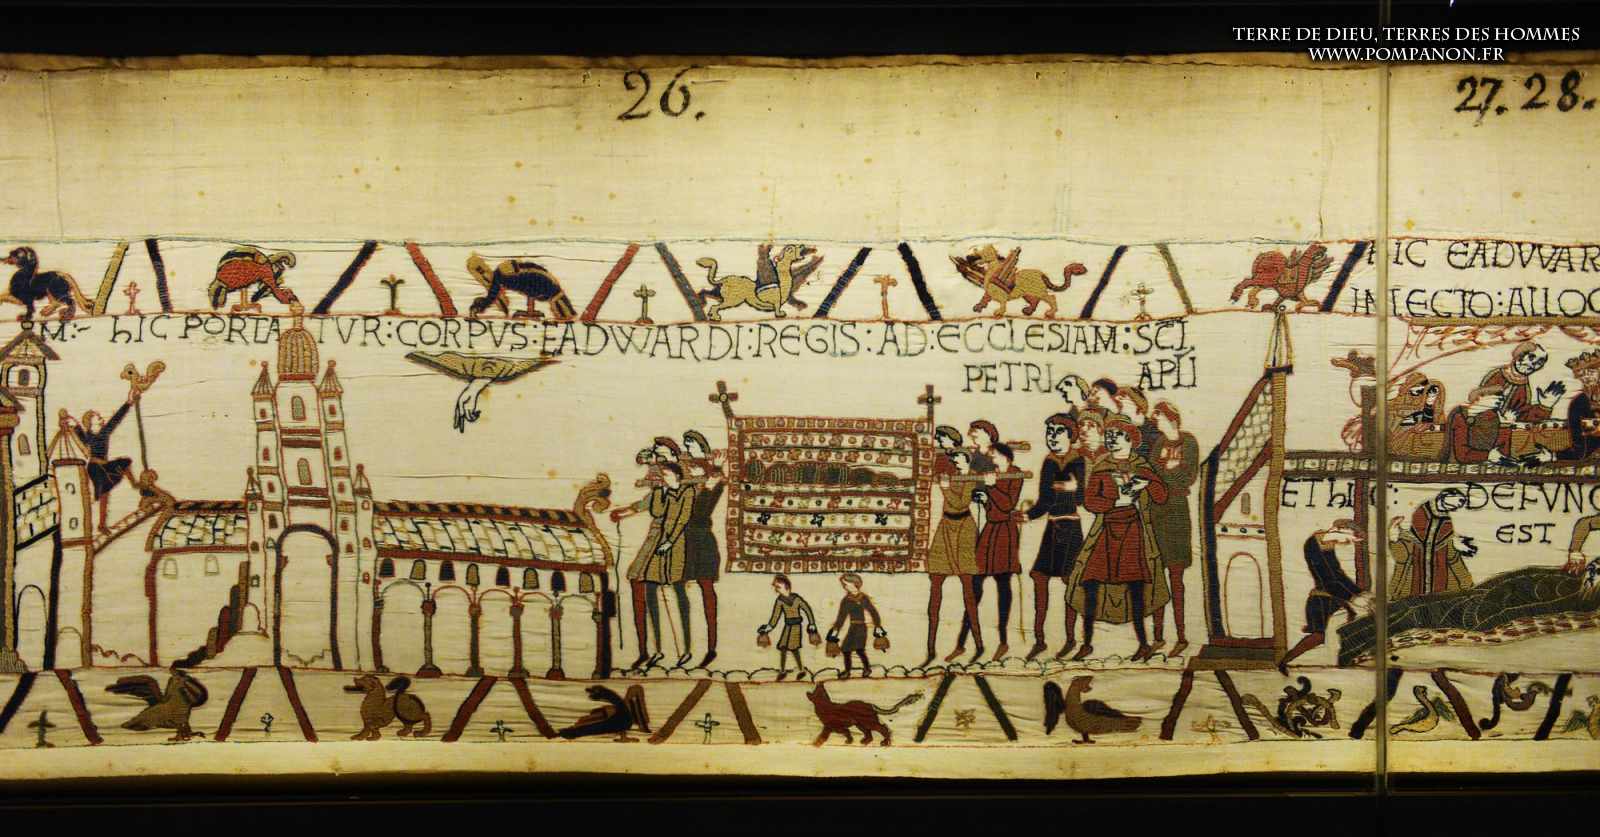 TERRE DE DIEU, TERRES DES HOMMES
WWW.POMPANON.FR
26.
27. 28.
M:- hIC PORTATVR:CORPVS:EADWARDI:REGIS:AD:ECCLESIAM:SCI,
PETRI APLI
hIC EADVVAR
IN LECTO:ALLOQ
ET hIC: DEFVNC
EST